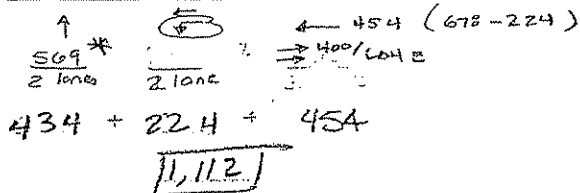 ← 454 (678-224)
569*
2 lanes
2 lane
400/604
434 + 22.4 + 454
1,112